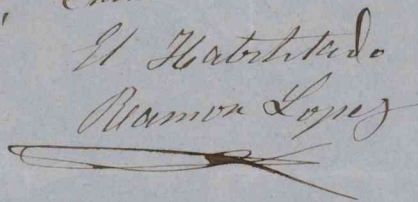 El Habilitado
Ramon Lopez